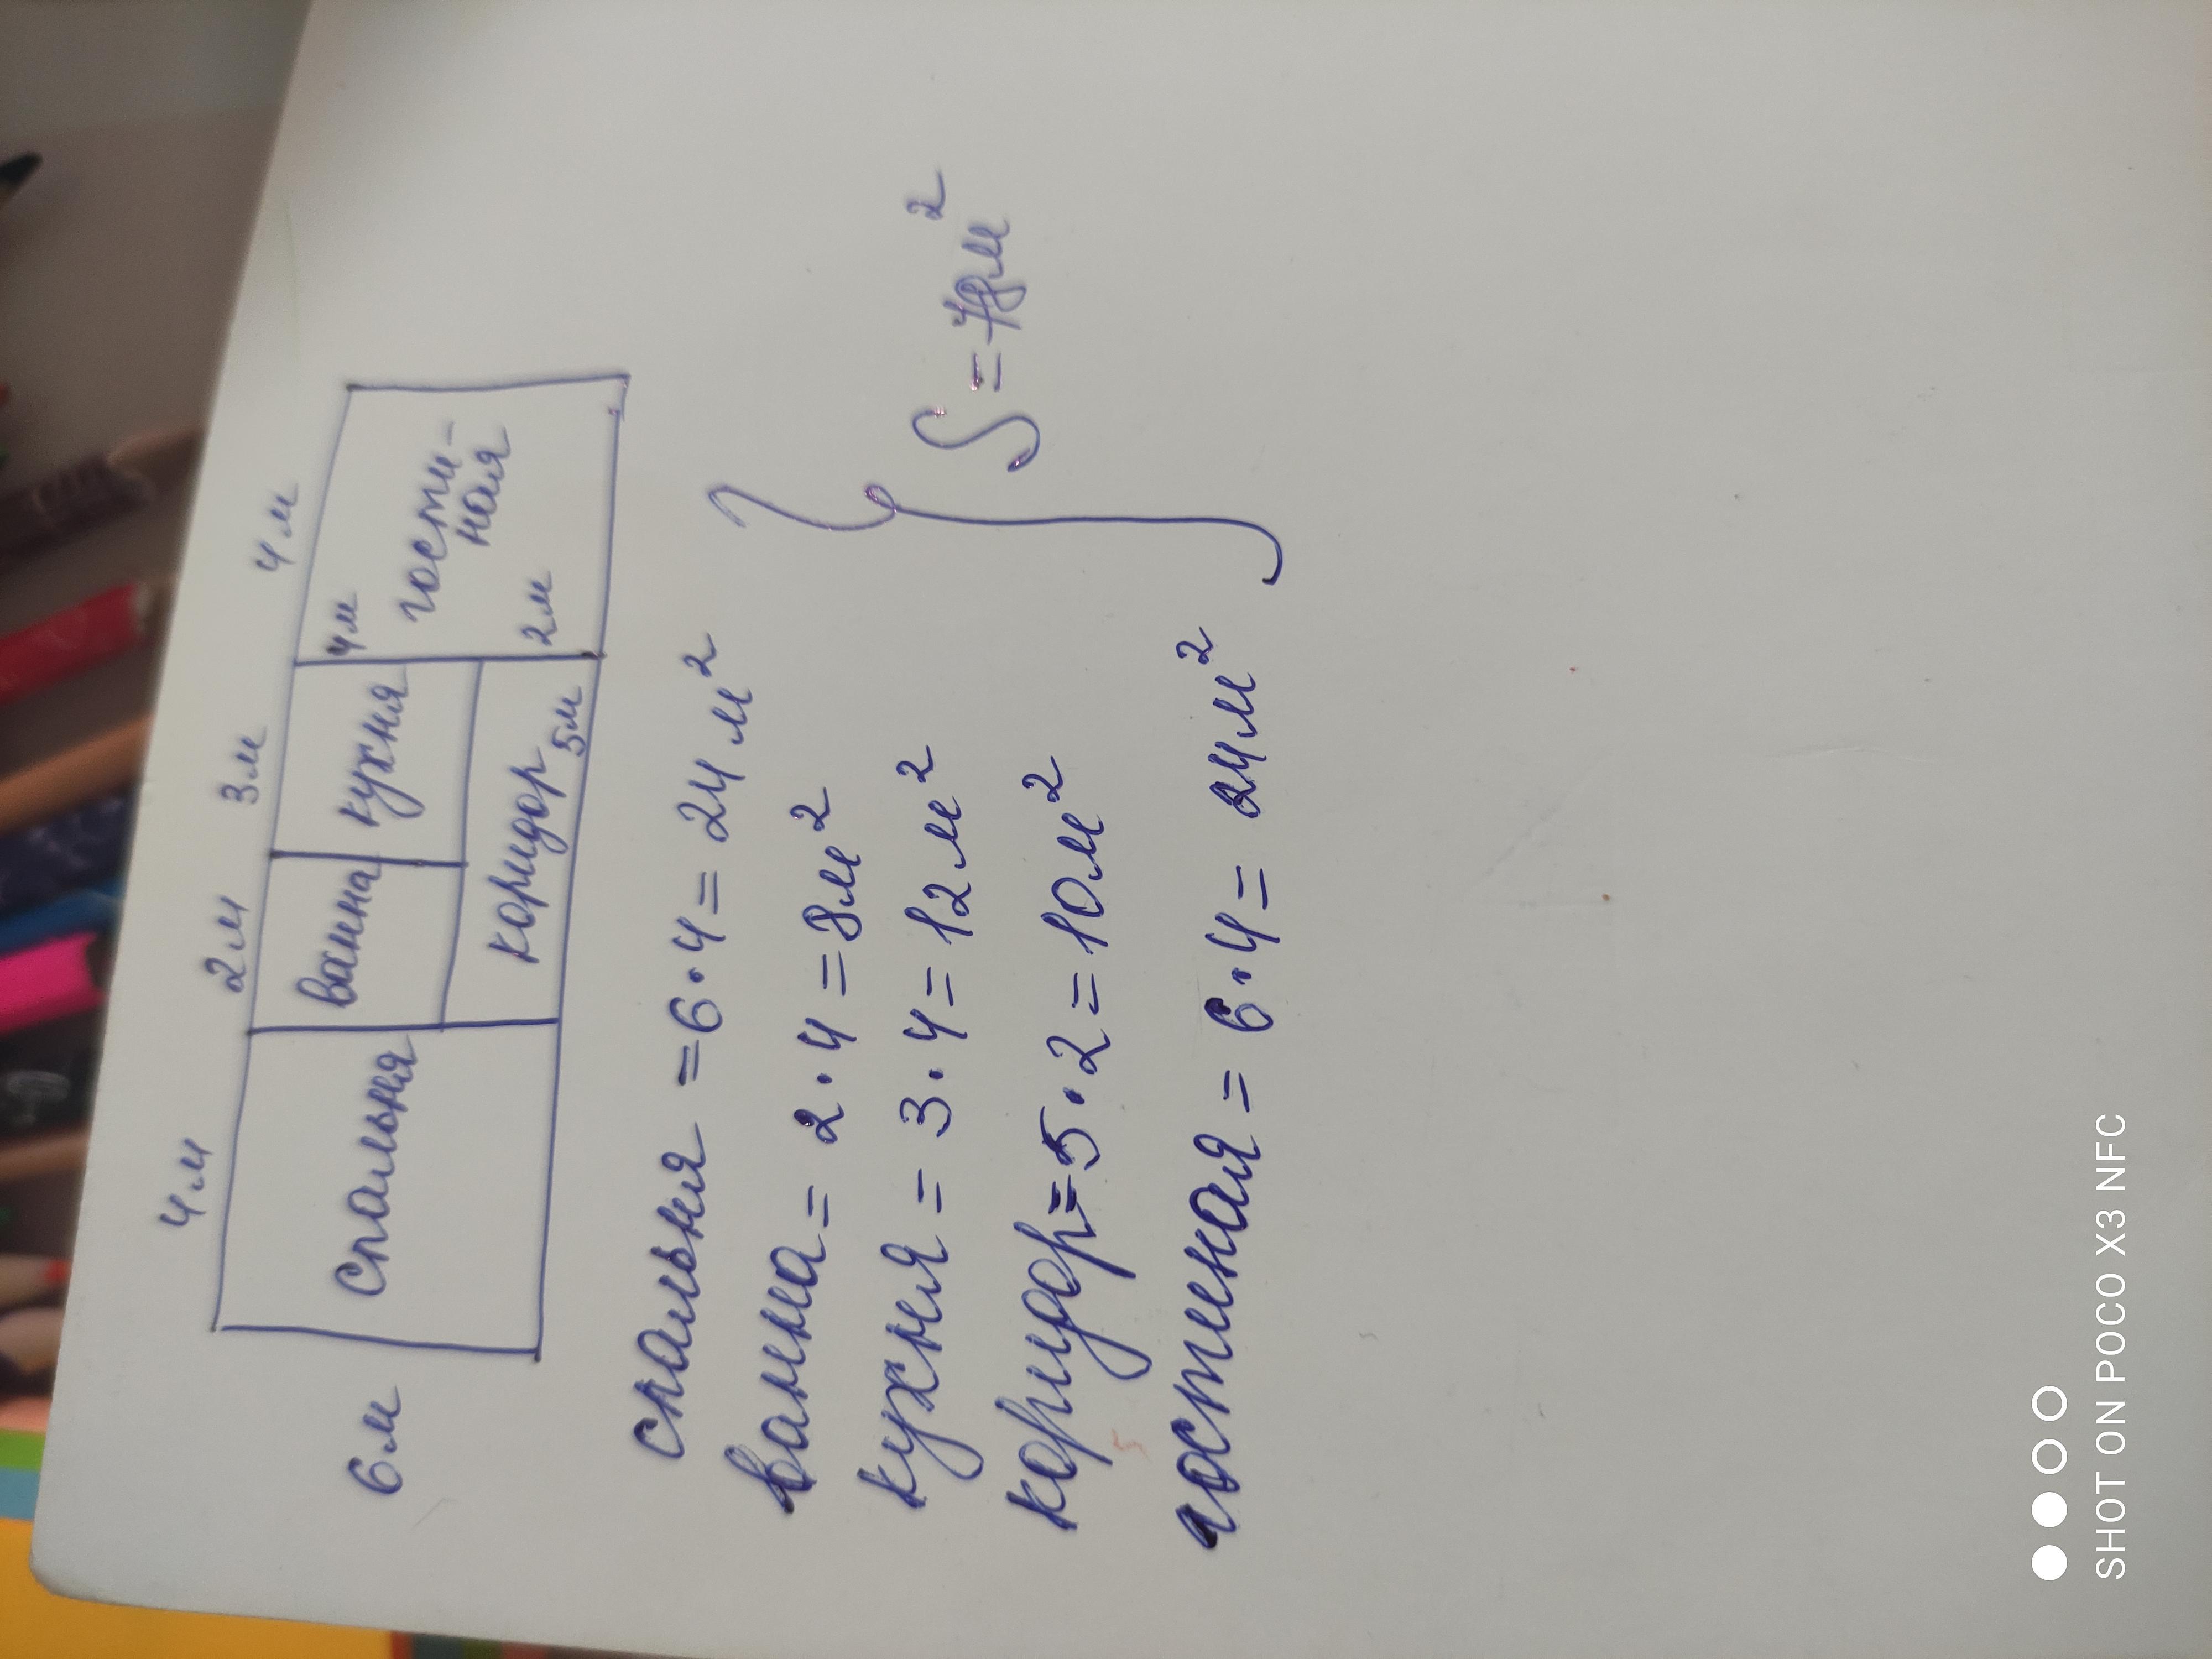 4м 2м 3м 4м
6м спальня ванна кухня 4м гости-
ная
коридор 5м 2м
спальня = 6 · 4 = 24 м²
ванна = 2 · 4 = 8м²
кухня = 3 · 4 = 12 м²
коридор = 5 · 2 = 10м²
гостиная = 6 · 4 = 24м²
S = 78м²
SHOT ON POCO X3 NFC